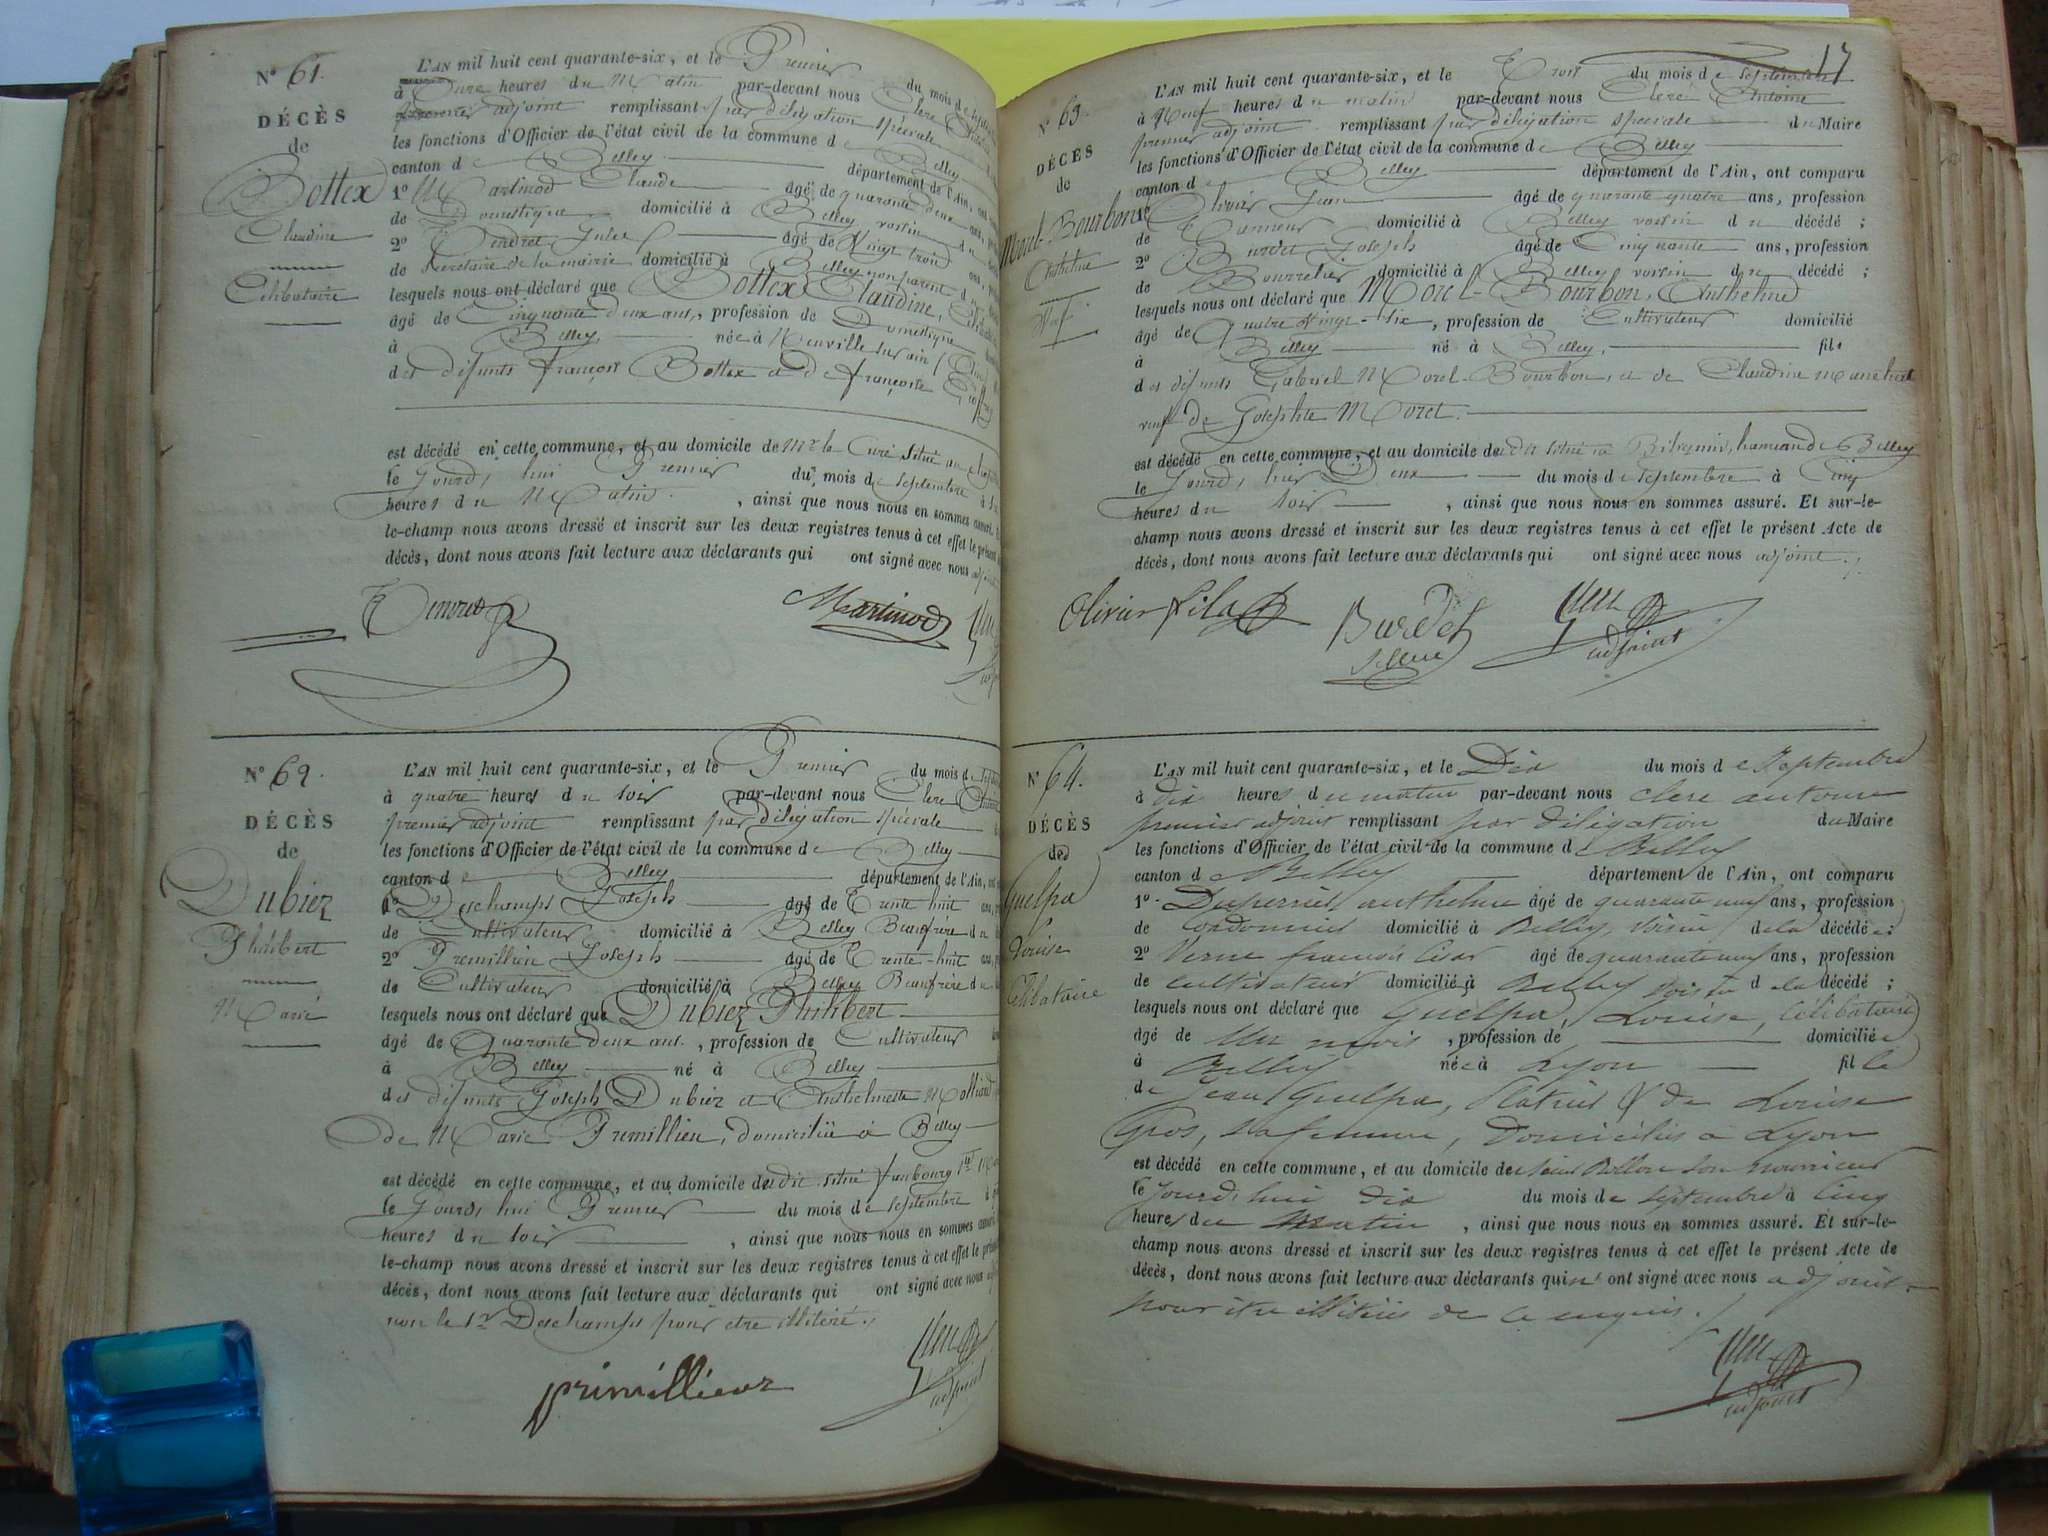 N° 61.
DÉCÈS
de
Bottex
Claudine
Célibataire
L'AN mil huit cent quarante-six, et le Premier du mois de
à Onze heures du Matin par-devant nous Clerc
premier adjoint remplissant par délégation spéciale
les fonctions d'Officier de l'état civil de la commune de Belley
canton de Belley département de l'Ain, ont
1° Martinod Claude âgé de quarante deux ans,
de Domestique domicilié à Belley voisin d
2° Tendret Jules âgé de Vingt trois ans,
de Secrétaire de la mairie domicilié à Belley non parent d
lesquels nous ont déclaré que Bottex Claudine,
âgé de Cinquante deux ans, profession de Domestique
à Belley née à Neuville sur ain (Ain)
des défunts françois Bottex et de françoise
est décédé en cette commune, et au domicile de Mr le Curé situé au
le Jourd'hui Premier du mois de septembre à
heures du Matin , ainsi que nous nous en sommes assuré.
le-champ nous avons dressé et inscrit sur les deux registres tenus à cet effet le présent
décès, dont nous avons fait lecture aux déclarants qui ont signé avec nous
Tendret Martinod
N° 62.
DÉCÈS
de
Dubiez
Philibert
Marié
L'AN mil huit cent quarante-six, et le Premier du mois d
à quatre heures du soir par-devant nous Clerc
premier adjoint remplissant par délégation spéciale
les fonctions d'Officier de l'état civil de la commune de Belley
canton de Belley département de l'Ain,
1° Deschamps Joseph âgé de Trente huit ans,
de Cultivateur domicilié à Belley Beaufrère du
2° Premillieu Joseph âgé de Trente-huit ans,
de Cultivateur domicilié à Belley Beaufrère du
lesquels nous ont déclaré que Dubiez Philibert
âgé de Quarante deux ans, profession de Cultivateur
à Belley né à Belley
des défunts Joseph Dubiez et Anthelmette
de Marie Premillieu, domiciliée à Belley
est décédé en cette commune, et au domicile du dit situé faubourg
le Jourd'hui Premier du mois de septembre à
heures du soir , ainsi que nous nous en sommes assuré
le-champ nous avons dressé et inscrit sur les deux registres tenus à cet effet le
décès, dont nous avons fait lecture aux déclarants qui ont signé avec nous
non le Sr Deschamps pour être illitéré.
primillieux Clerc
adjoint
17
N° 63.
DÉCÈS
de
Morel-Bourbon
Anthelme
Veuf
L'AN mil huit cent quarante-six, et le Trois du mois de septembre
à Neuf heures du matin par-devant nous Clerc Antoine
premier adjoint remplissant par délégation spéciale du Maire
les fonctions d'Officier de l'état civil de la commune de Belley
canton de Belley département de l'Ain, ont comparu
1° Olivier Jean âgé de quarante quatre ans, profession
de Tanneur domicilié à Belley voisin du décédé ;
2° Burdet Joseph âgé de Cinquante ans, profession
de Bourrelier domicilié à Belley voisin du décédé ;
lesquels nous ont déclaré que Morel-Bourbon, Anthelme
âgé de Quatre Vingt-six, profession de Cultivateur domicilié
à Belley né à Belley, fils
des défunts Gabriel Morel-Bourbon, et de Claudine
veuf de Josephte Morel.
est décédé en cette commune, et au domicile du dit situé à hameau de Belley
le Jourd'hier Deux du mois de septembre à Cinq
heures du soir , ainsi que nous nous en sommes assuré. Et sur-le-
champ nous avons dressé et inscrit sur les deux registres tenus à cet effet le présent Acte de
décès, dont nous avons fait lecture aux déclarants qui ont signé avec nous adjoint.
Olivier fila Burdet Clerc
Sellier adjoint
N° 64.
DÉCÈS
de
Guelpa
Louise
Célibataire
L'AN mil huit cent quarante-six, et le Dix du mois de Septembre
à dix heures du matin par-devant nous Clerc antoine
premier adjoint remplissant par délégation du Maire
les fonctions d'Officier de l'état civil de la commune de Belley
canton de Belley département de l'Ain, ont comparu
1° Duperriel anthelme âgé de quarante neuf ans, profession
de Cordonnier domicilié à Belley, voisin de la décédée
2° Verne françois César âgé de quarante neuf ans, profession
de cultivateur domicilié à Belley voisin de la décédé ;
lesquels nous ont déclaré que Guelpa, Louise, Célibataire
âgé de Un mois , profession de domiciliée
à Belley née à Lyon fille
de Jean Guelpa, Platrier & de Louise
Gros, sa femme, Domiciliés à Lyon
est décédé en cette commune, et au domicile du sieur son nourricier
le Jourd'hui dix du mois de septembre à Cinq
heures du Matin , ainsi que nous nous en sommes assuré. Et sur-le-
champ nous avons dressé et inscrit sur les deux registres tenus à cet effet le présent Acte de
décès, dont nous avons fait lecture aux déclarants qui n'ont signé avec nous adjoint
pour être illitérés de ce enquis.
Clerc
adjoint